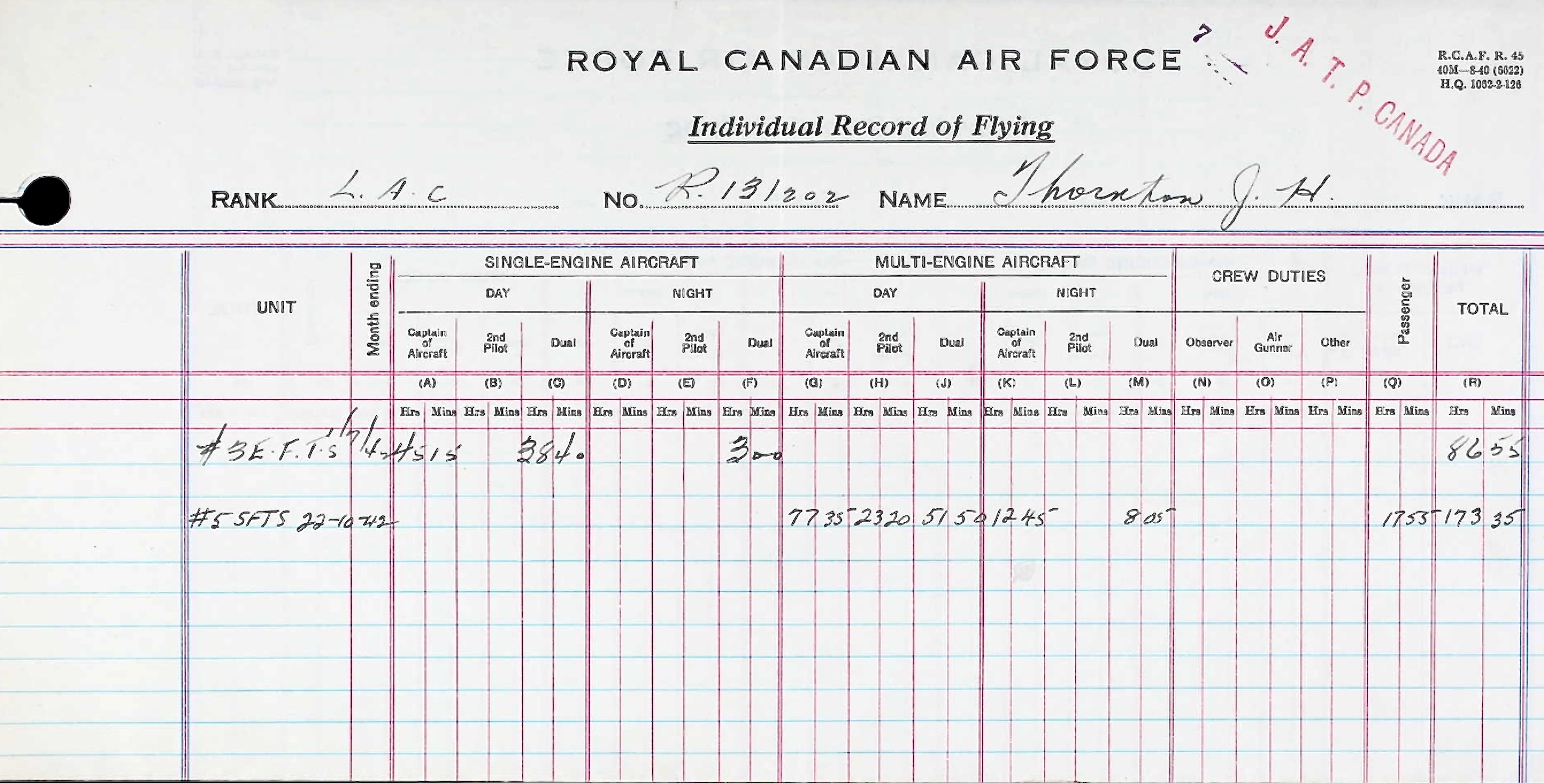 ROYAL CANADIAN AIR FORCE
7
J. A. T. P. CANADA
R.C.A.F. R. 45
40M—8-40 (6022)
H.Q. 1062-2-126
Individual Record of Flying
RANK L. A. C NO. R. 131202 NAME Thornton J. H.
UNIT Month ending SINGLE-ENGINE AIRCRAFT MULTI-ENGINE AIRCRAFT CREW DUTIES Passenger TOTAL
DAY NIGHT DAY NIGHT
Captain of Aircraft 2nd Pilot Dual Captain of Aircraft 2nd Pilot Dual Captain of Aircraft 2nd Pilot Dual Captain of Aircraft 2nd Pilot Dual Observer Air Gunner Other
(A) (B) (C) (D) (E) (F) (G) (H) (J) (K) (L) (M) (N) (O) (P) (Q) (R)
Hrs Mins Hrs Mins Hrs Mins Hrs Mins Hrs Mins Hrs Mins Hrs Mins Hrs Mins Hrs Mins Hrs Mins Hrs Mins Hrs Mins Hrs Mins Hrs Mins Hrs Mins Hrs Mins Hrs Mins
#3 E.F.T.S 1/7/42 45 15 38 40 3 00 86 55
#5 SFTS 22-10-42 77 35 23 20 51 50 12 45 8 05 17 55 173 35